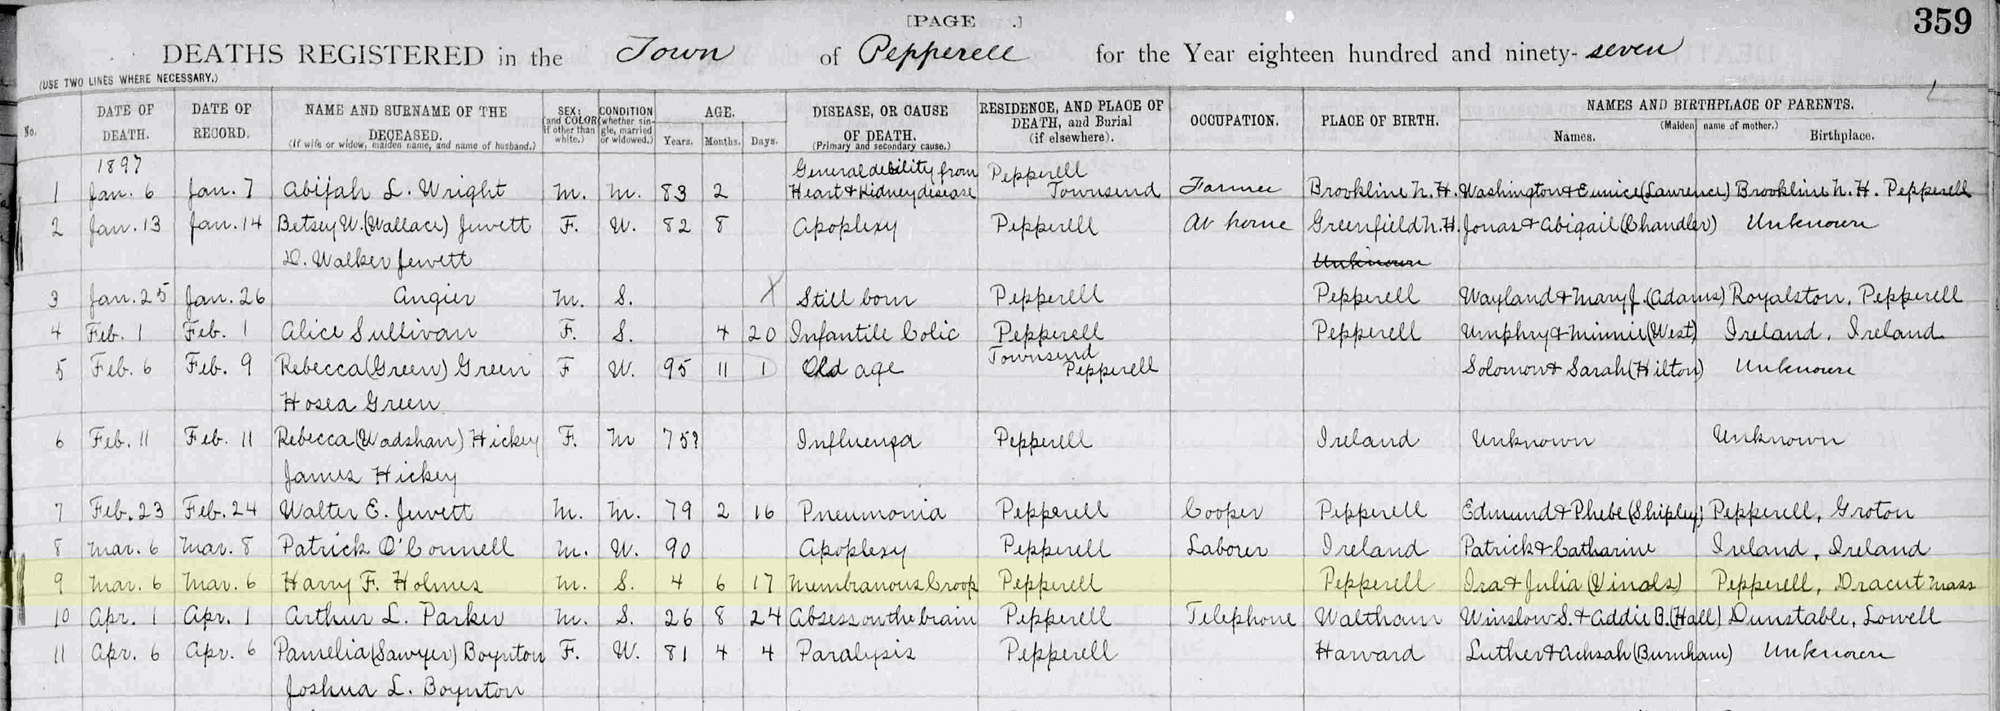 [PAGE .] 359
DEATHS REGISTERED in the Town of Pepperell for the Year eighteen hundred and ninety-seven
(USE TWO LINES WHERE NECESSARY.)
No. DATE OF DEATH. DATE OF RECORD. NAME AND SURNAME OF THE DECEASED. (If wife or widow, maiden name, and name of husband.) SEX; (and COLOR if other than white.) CONDITION (whether single, married or widowed.) AGE. Years. Months. Days. DISEASE, OR CAUSE OF DEATH. (Primary and secondary cause.) RESIDENCE, AND PLACE OF DEATH, and Burial (if elsewhere). OCCUPATION. PLACE OF BIRTH. NAMES AND BIRTHPLACE OF PARENTS. Names. (Maiden name of mother.) Birthplace.
1897 General debility from Pepperell
1 Jan. 6 Jan. 7 Abijah L. Wright M. M. 83 2 Heart & Kidney disease Townsend Farmer Brookline N.H. Washington & Eunice (Lawrence) Brookline N.H. Pepperell
2 Jan. 13 Jan. 14 Betsey W. (Wallace) Jewett F. W. 82 8 Apoplexy Pepperell At home Greenfield N.H. Jonas & Abigail (Chandler) Unknown
D. Walker Jewett Unknown
3 Jan. 25 Jan. 26 Angier M. S. X Still born Pepperell Pepperell Wayland & Mary J. (Adams) Royalston, Pepperell
4 Feb. 1 Feb. 1 Alice Sullivan F. S. 4 20 Infantile Colic Pepperell Pepperell Umphry & Minnie (West) Ireland, Ireland
5 Feb. 6 Feb. 9 Rebecca (Green) Green F W. 95 11 1 Old age Townsend Pepperell Solomon & Sarah (Hilton) Unknown
Hosea Green
6 Feb. 11 Feb. 11 Rebecca (Wadshan) Hickey F. M 75? Influenza Pepperell Ireland Unknown Unknown
James Hickey
7 Feb. 23 Feb. 24 Walter E. Jewett M. M. 79 2 16 Pneumonia Pepperell Cooper Pepperell Edmund & Phebe (Shipley) Pepperell, Groton
8 Mar. 6 Mar. 8 Patrick O'Connell M. W. 90 Apoplexy Pepperell Laborer Ireland Patrick & Catharine Ireland, Ireland
9 Mar. 6 Mar. 6 Harry F. Holmes M. S. 4 6 17 Membranous Croop Pepperell Pepperell Ira & Julia (Vinals) Pepperell, Dracut Mass
10 Apr. 1 Apr. 1 Arthur L. Parker M. S. 26 8 24 Absess on the brain Pepperell Telephone Waltham Winslow S. & Addie B. (Hall) Dunstable, Lowell
11 Apr. 6 Apr. 6 Pamelia (Sawyer) Boynton F. W. 81 4 4 Paralysis Pepperell Harvard Luther & Achsah (Burnham) Unknown
Joshua L. Boynton